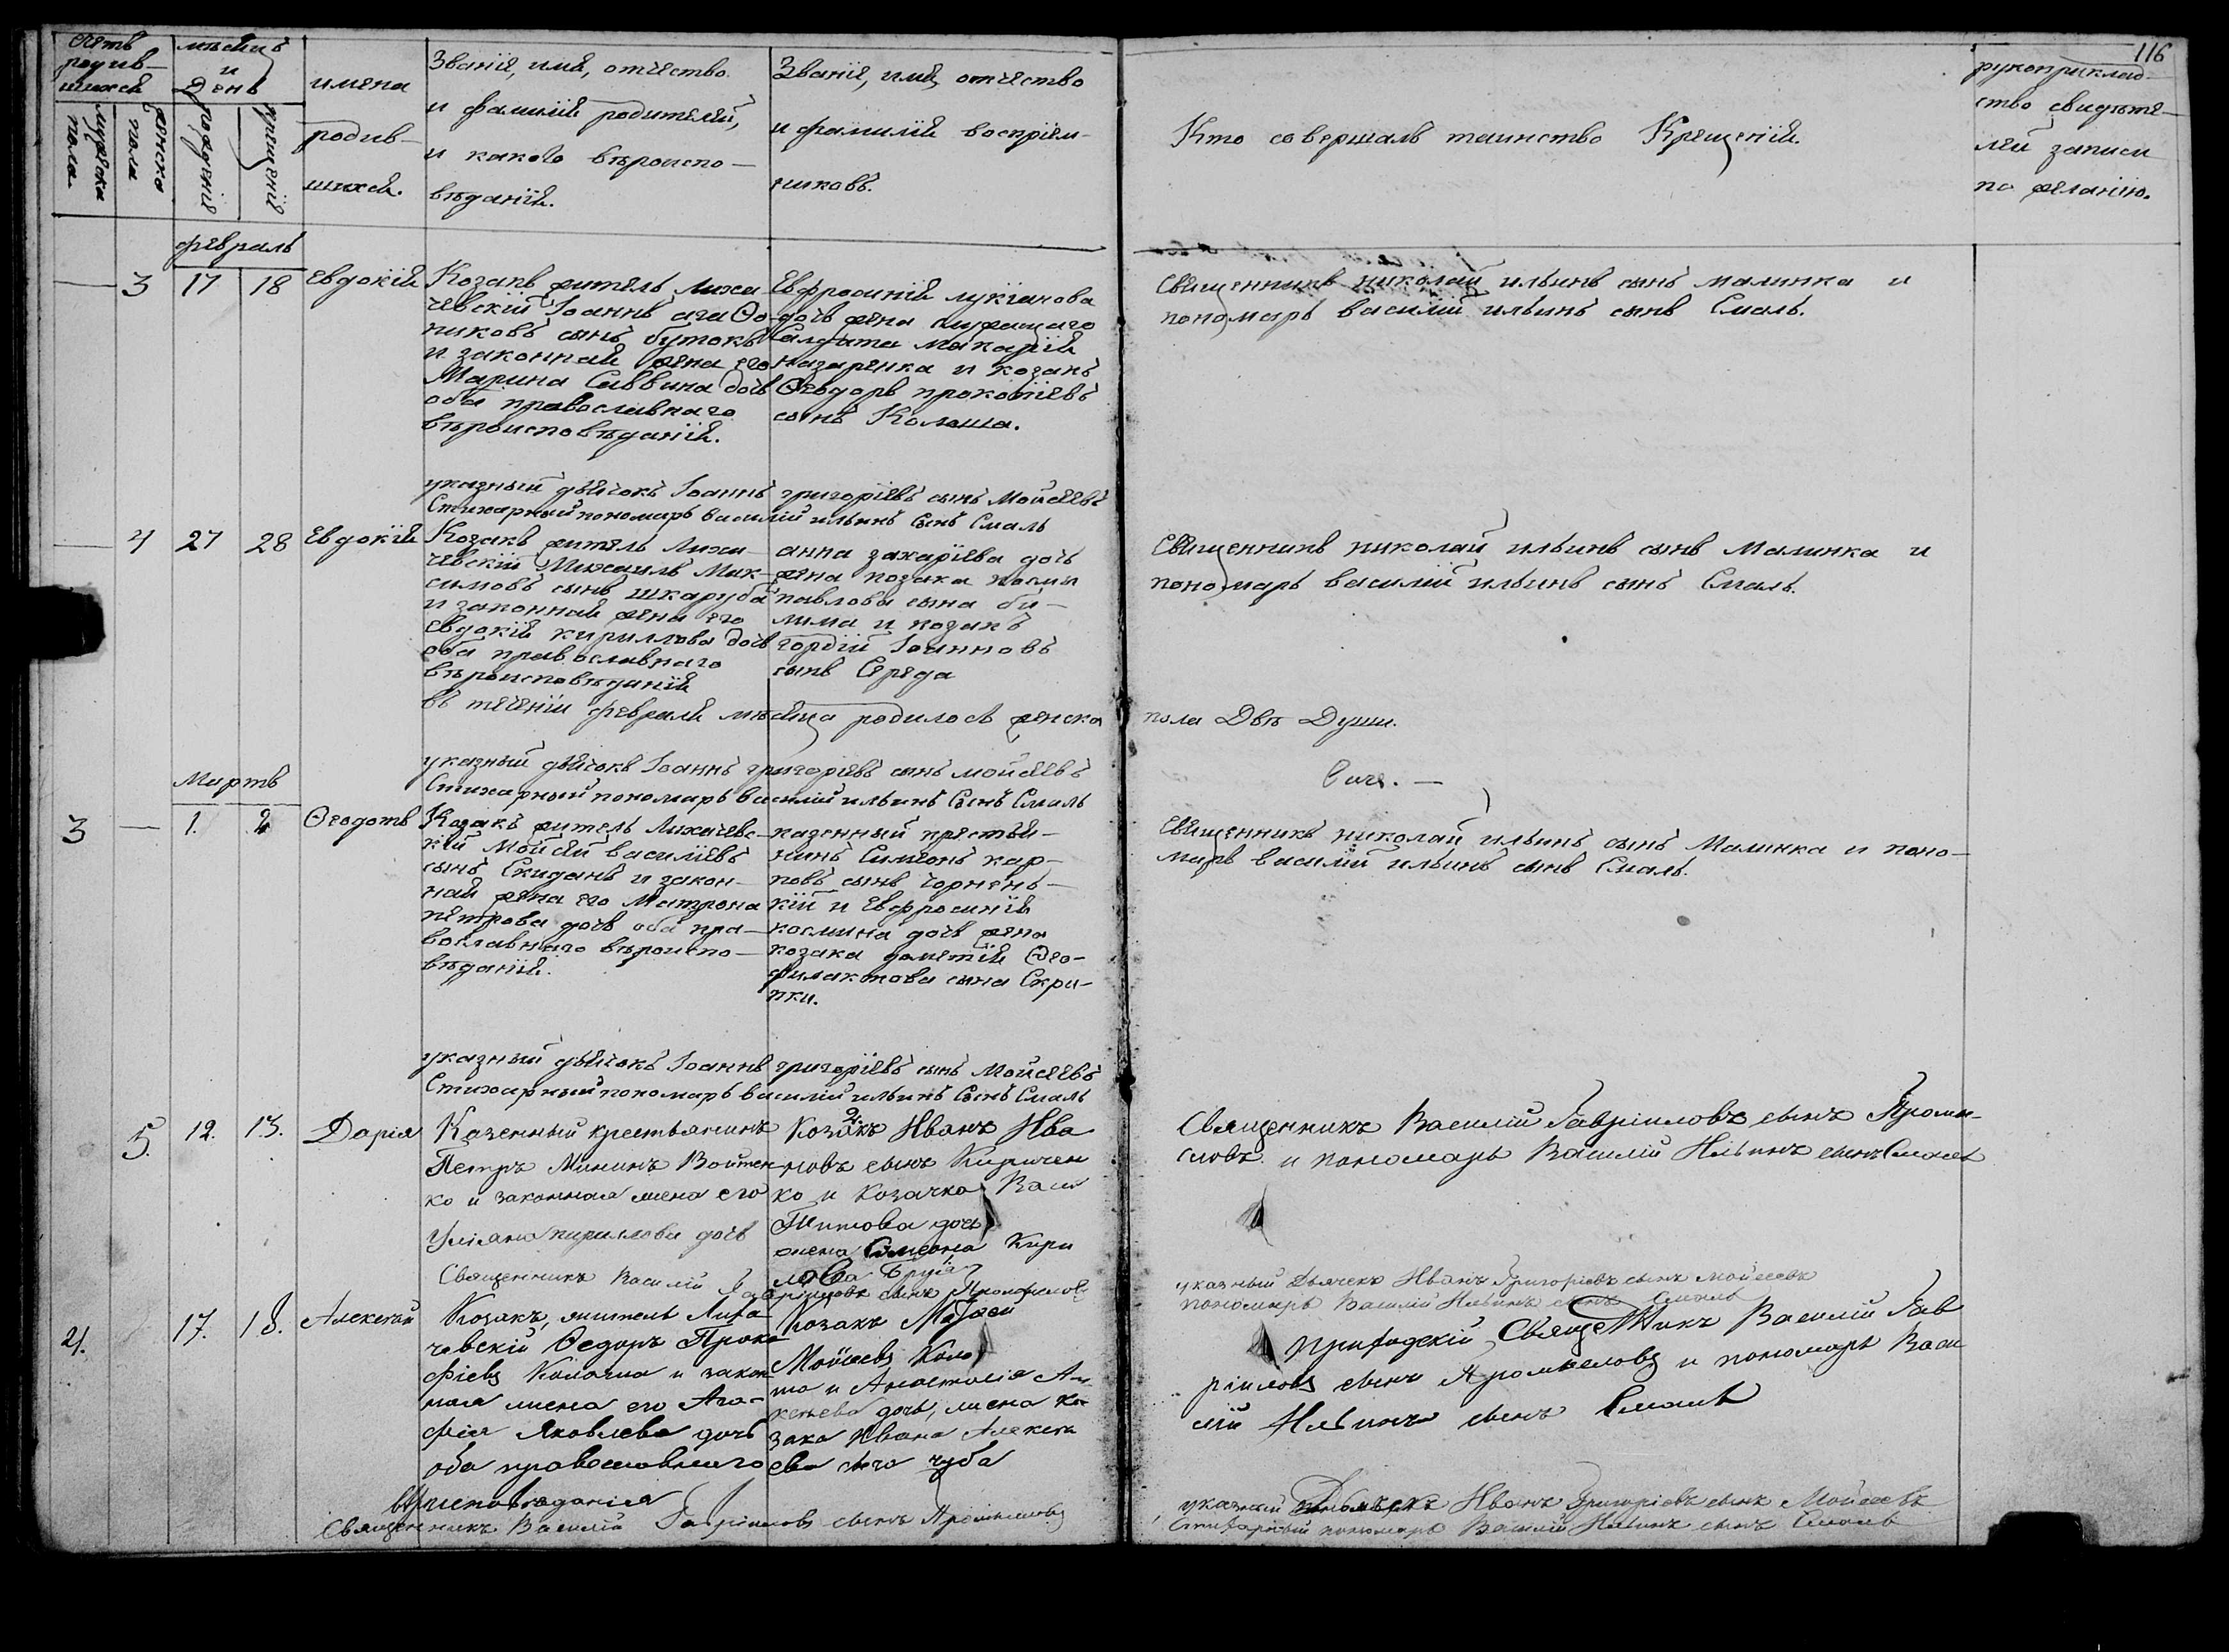 116
Счетъ родив-шихся
мѣсяцъ и День
имена родив-шихся.
Званіе, имя, отчество
и фамилія родителей,
и какого вѣроиспо-
вѣданія.
Званіе, имя, отчество
и фамилія воспріем-
никовъ.
Кто совершалъ таинство Крещенія.
рукоприклад-
ство свидѣте-
лей записи
по желанію.
мужеска пола
женско пола
рожденія
крещенія
февраль
— 3 17 18 Евдокія
Козакъ житель Лиха-
чевскій Іоаннъ
никовъ сынъ бутокъ
и законная жена его
Марина Саввина дочь
оба православнаго
вѣроисповѣданія.
Евфросинія лукіанова
дочь жена
Салдата Макарія
назаренка и козакъ
Ѳеодоръ прокопіевъ
сынъ Колоша.
Священникъ николай ильинъ сынъ малинка и
пономарь василій ильинъ сынъ Смаль.
указный дьячокъ Іоаннъ григоріевъ сынъ Мойсеевъ
Стихарный пономарь василій ильинъ Сынъ Смаль
— 4 27 28 Евдокія
Козакъ житель Лиха-
чевскій Михаилъ Мак-
симовъ сынъ шкаруба
и законная жена его
евдокія кириллова дочь
оба православнаго
вѣроисповѣданія
анна захаріева дочь
жена козака космы
павлова сына би-
лима и козакъ
гордій Іоанновъ
сынъ Середа
Священникъ николай ильинъ сынъ Малинка и
пономарь василій ильинъ сынъ Смаль.
въ теченіи февраля мѣсяца родилось женска пола Двѣ Души.
указный дьячокъ Іоаннъ григоріевъ сынъ мойсеевъ
Стихарный пономарь василій ильинъ Сынъ Смаль
Мартъ
3 — 1. 2 Ѳеодотъ
Козакъ житель Лихачевс-
кій Мойсей василіевъ
сынъ Скиданъ и закон-
ная жена его Матрона
петрова дочь оба пра-
вославнаго вѣроиспо-
вѣданія.
казенный крестья-
нинъ Симеонъ кар-
повъ сынъ чорнень-
кій и Евфросинія
космина дочь жена
козака дометія Ѳео-
филактова сына Скри-
пки.
Священникъ николай ильинъ сынъ Малинка и поно-
марь василій ильинъ сынъ Смаль.
указный дьячокъ Іоаннъ григоріевъ сынъ Мойсеевъ
Стихарный пономарь василій ильинъ Сынъ Смаль
5. 12. 13. Дарія
Казенный крестьянинъ
Петръ Мининъ Войтен
ко и законная жена его
Уліяна кириллова дочь
Козакъ Иванъ Ива
новъ сынъ Киричен
ко и Козачка Васи
Титова дочь
жена Симеона Кири
лова
Священникъ Василій Гавріиловъ сынъ Промы-
словъ и пономарь Василій Ильинъ сынъ Смаль
Священникъ Василій Гавріиловъ сынъ
указный Дьячекъ Иванъ Григоріевъ сынъ Мойсеевъ
пономарь Василій Ильинъ сынъ Смаль
4. 17. 18. Алексѣй
Козакъ, житель Лиха-
човскій Ѳедоръ Проко
фіевъ Колоша и закон
ная жена его Ага-
фія Яковлева дочь
оба православнаго
вѣроисповѣданія
Козакъ Матѳей
Мойсеевъ Коло
ша и Анастасія
дочь, жена Ко
зака Ивана Алексѣ
ева сына чуба
приходскій Священникъ Василій Гав
ріиловъ сынъ Промысловъ и пономарь Васи
лій Ильинъ сынъ Смаль
Священникъ Василій Гавріиловъ сынъ Промысловъ
указный Дьячекъ Иванъ Григоріевъ сынъ Мойсеевъ
Стихарный пономарь Василій Ильинъ сынъ Смаль